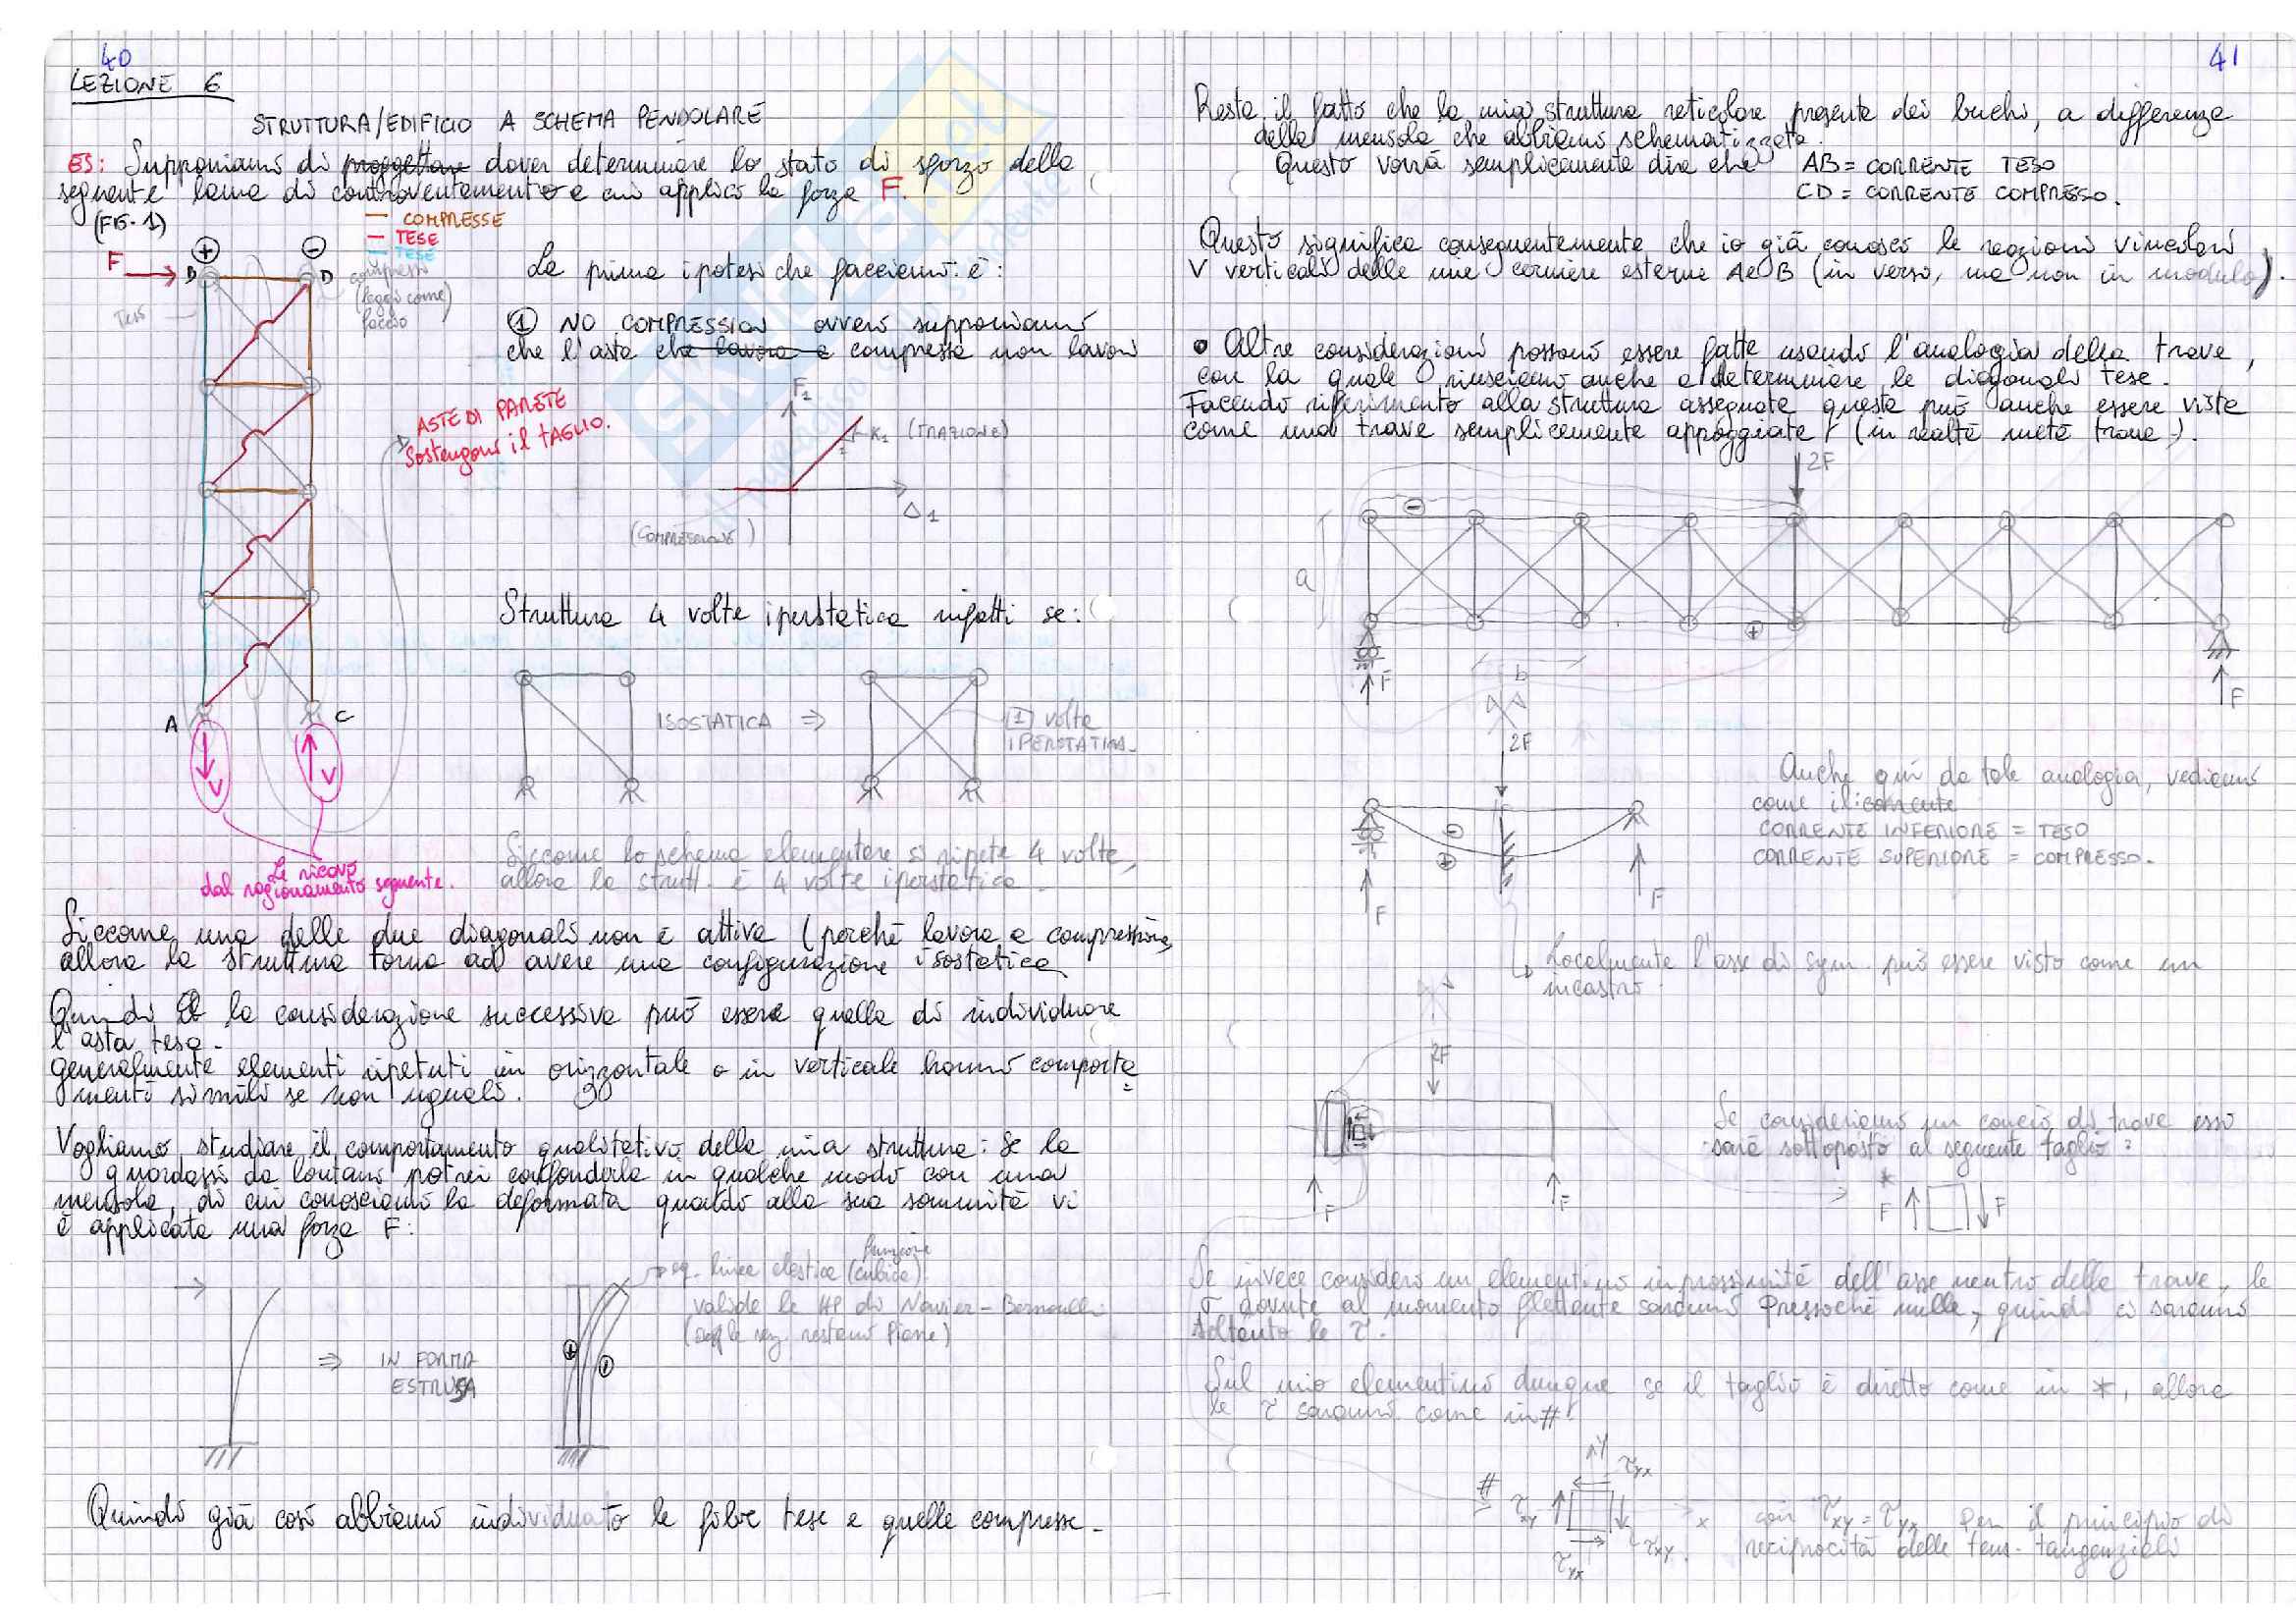 40
LEZIONE 6
STRUTTURA/EDIFICIO A SCHEMA PENDOLARE
ES: Supponiamo di progettare dover determinare lo stato di sforzo della
seguente lama di controventamento e cui applico la forza F.
(FIG. 1)
COMPRESSE
TESE
TESE
F
+
-
B
D
compressi
(leggi come
faccio
Teso
La prima ipotesi che facciamo è:
① NO COMPRESSION ovvero supponiamo
che l'asta che lavora a compressa non lavori
ASTE DI PARETE
Sostengono il TAGLIO.
F1
K1 (TRAZIONE)
Δ1
(COMPRESSIONE)
Struttura 4 volte iperstatica infatti se:
A
C
V
V
ISOSTATICA ⇒
1 volta
IPERSTATICA
Le ricavo
dal ragionamento seguente.
Siccome lo schema elementare si ripete 4 volte,
allora la strutt. è 4 volte iperstatica.
Siccome una delle due diagonali non è attiva (perché lavora a compressione,
allora la struttura torna ad avere una configurazione isostatica
Quindi la considerazione successiva può essere quella di individuare
l'asta tesa.
generalmente elementi ripetuti in orizzontale o in verticale hanno comporta=
menti simili se non uguali.
Vogliamo studiare il comportamento qualitativo della mia struttura: Se la
guardassi da lontano potrei confonderla in qualche modo con una
mensola, di cui conosciamo la deformata quando alla sua sommità vi
è applicata una forza F:
funzione
eq. linea elastica (cubica)
valida le HP di Navier-Bernoulli
(le sez. restano Piane)
⇒ IN FORMA
ESTRUSA
+
-
Quindi già così abbiamo individuato le fibre tese e quelle compresse.
41
Resta il fatto che la mia struttura reticolare presenta dei buchi, a differenza
della mensola che abbiamo schematizzato.
Questo vorrà semplicemente dire che
AB = CORRENTE TESO
CD = CORRENTE COMPRESSO.
Questo significa conseguentemente che io già conosco le reazioni vincolari
V verticali delle mie cerniere esterne A e B (in verso, ma non in modulo).
• Altre considerazioni possono essere fatte usando l'analogia della trave,
con la quale riusciamo anche a determinare le diagonali tese.
Facendo riferimento alla struttura assegnata questa può anche essere vista
come una trave semplicemente appoggiata (in realtà metà trave).
2F
-
a
+
F
b
F
2F
-
+
F
F
Anche qui da tale analogia, vediamo
come il corrente
CORRENTE INFERIORE = TESO
CORRENTE SUPERIORE = COMPRESSO.
Localmente l'asse di sym. può essere visto come un
incastro.
2F
F
F
Se consideriamo un concio di trave esso
sarà sottoposto al seguente taglio:
*
F
F
Se invece considero un elementino in prossimità dell'asse neutro della trave, le
σ dovute al momento flettente saranno pressoché nulle, quindi ci saranno
soltanto le τ.
Sul mio elementino dunque se il taglio è diretto come in *, allora
le τ saranno come in #.
#
Y
τyx
τxy
x
τxy
τyx
con τxy = τyx Per il principio di
reciprocità delle tens. tangenziali